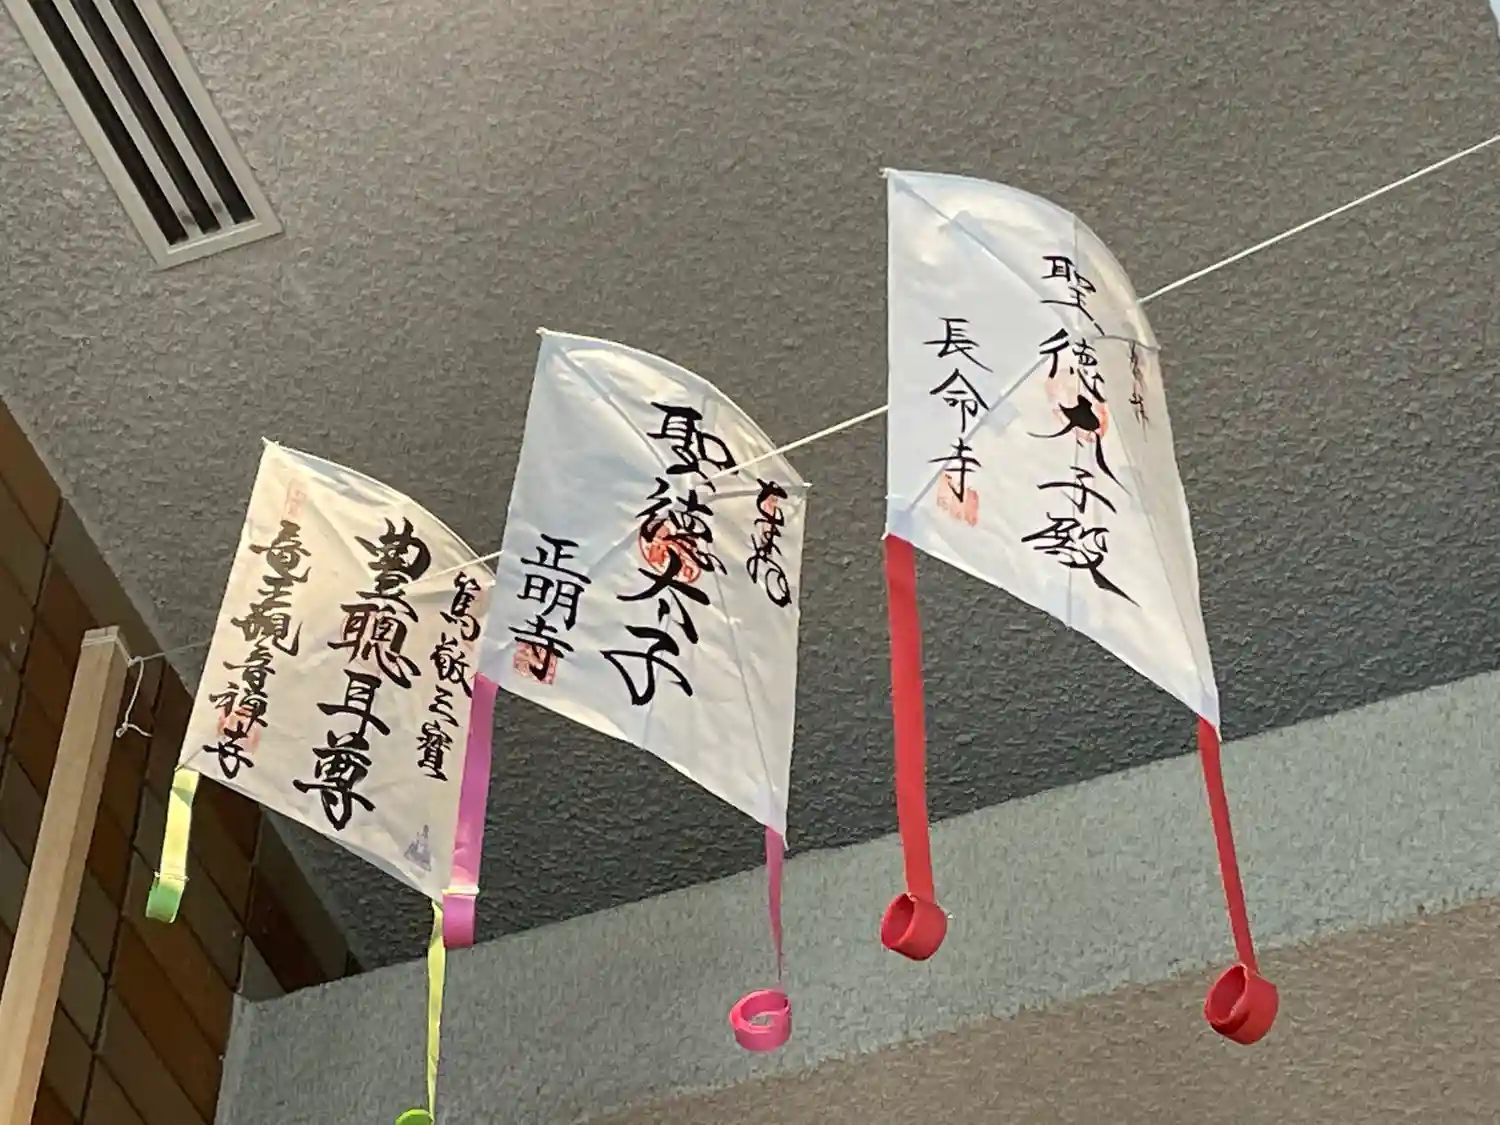 篤敬三寶
豊聰耳尊
竜王観音禅寺
奉拝
聖徳太子
正明寺
奉拝
聖徳太子殿
長命寺